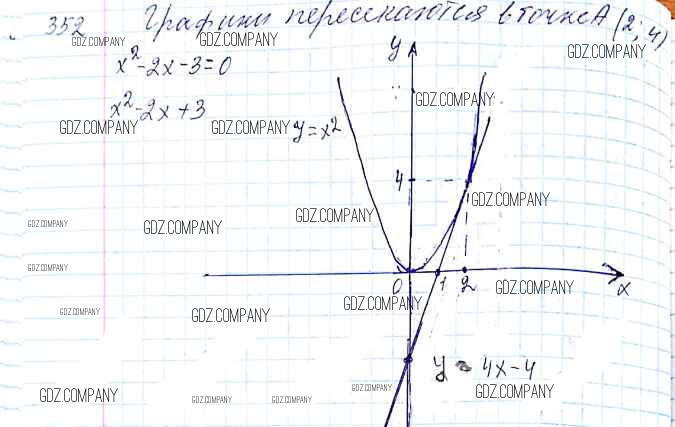 352 Графики пересекаются в точке A (2; 4)
GDZ.COMPANY GDZ.COMPANY GDZ.COMPANY
x²-2x-3=0
y
x²-2x+3
GDZ.COMPANY
GDZ.COMPANY GDZ.COMPANY y=x²
4
GDZ.COMPANY
GDZ.COMPANY GDZ.COMPANY GDZ.COMPANY
GDZ.COMPANY
0 1 2 GDZ.COMPANY x
GDZ.COMPANY GDZ.COMPANY GDZ.COMPANY
y = 4x-4
GDZ.COMPANY GDZ.COMPANY GDZ.COMPANY GDZ.COMPANY GDZ.COMPANY